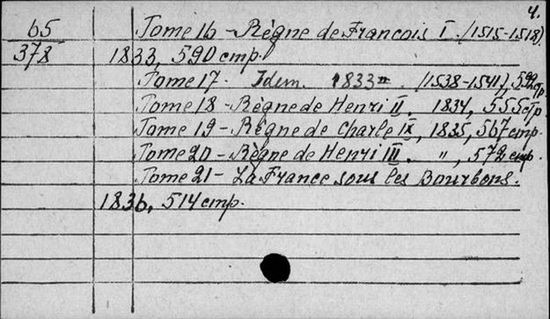 4.
65 Tome 16 - Règne de Francois I. (1515-1518).
378 1833, 590 стр.
Tome 17. Idem. 1833 (1538-1541), 592 стр.
Tome 18 - Règne de Henri II. 1834, 555 стр.
Tome 19 - Règne de Charle IX, 1835, 567 стр.
Tome 20 - Règne de Henri III. ", 572 стр.
Tome 21 - La France sous les Bourbons.
1836, 514 стр.